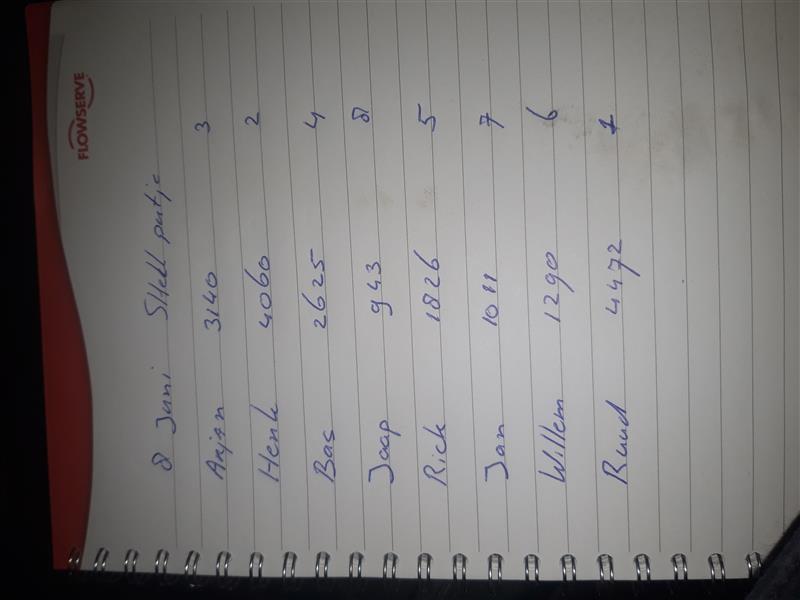 FLOWSERVE
8 Juni SHell putje
Arjan 3140 3
Henk 4060 2
Bas 2625 4
Jaap 943 8
Rick 1826 5
Jan 1011 7
Willem 1290 6
Ruud 4472 1